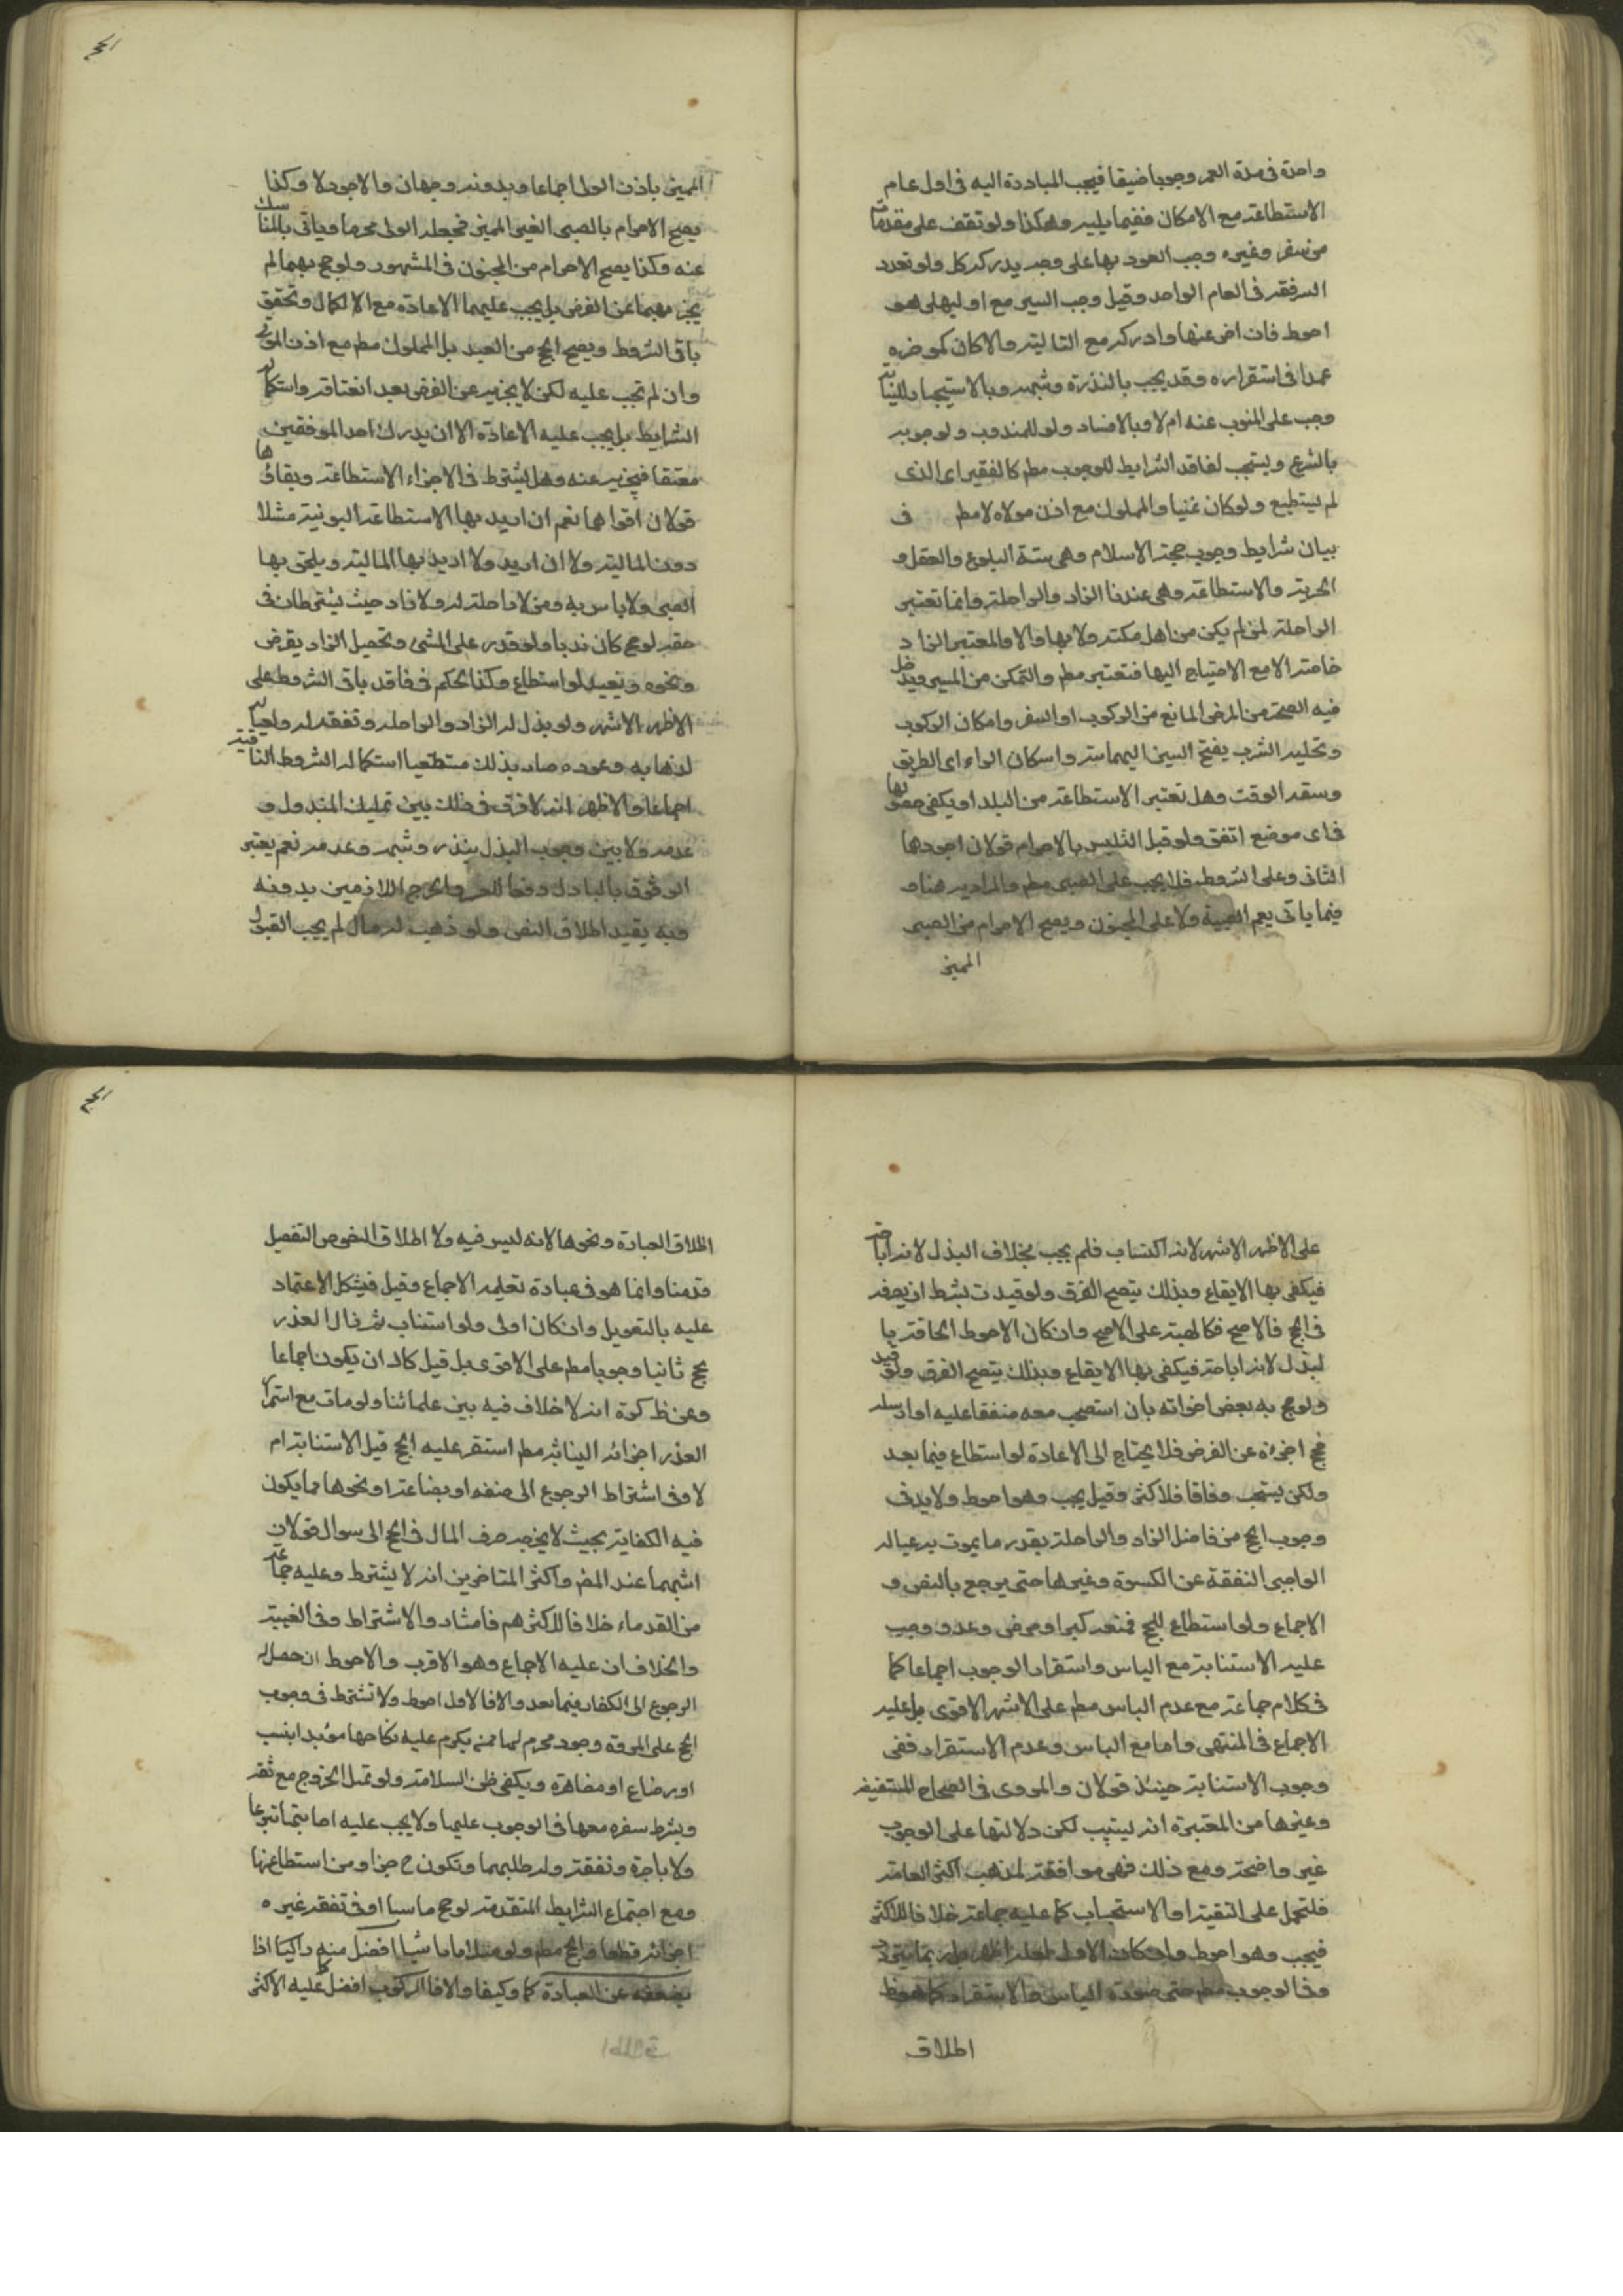 واحدة فى مدة العمر وجوبا ضيقا فيجب المبادرة اليه فى اول عام
الاستطاعة مع الامكان ففيما يليه وهكذا ولو توقف على مقدمات
من سفر وغيره وجب العود بها على وجه يدركه كل ولو تعدد
الرفقة فى العام الواحد وقيل وجب السير مع اوليها هو
احوط فان اخر عنها وادركه مع التالية والا كان كموخره
عمدا فى استقراره وقد يجب بالنذر وشبهه وبالاستيجار للنيابة
وجب على المنوب عنه ام لا وبالافساد ولو للمندوب ولوجوبه
بالشرع ويستحب لفاقد الشرايط للوجوب مطم كالفقير اى الذى
لم يستطيع ولو كان غنيا والمملوك مع اذن مولاه لا مطم فى
بيان شرايط وجوب حجة الاسلام وهى ستة البلوغ والعقل و
الحرية والاستطاعة وهى عندنا الزاد والراحلة وانما تعتبر
الراحلة لمن لم يكن من اهل مكة ولا بها والا فالمعتبر الزاد
خاصة الا مع الاحتياج اليها فتعتبر مطم والتمكن من المسير ويدخل
فيه الصحة من المرض المانع من الركوب او السفر وامكان الركوب
وتخلية السرب بفتح السين المهملة واسكان الراء اى الطريق
وسعة الوقت وهل تعتبر الاستطاعة من البلد او يكفى حصولها
فى اى موضع اتفق ولو قبل التلبس بالاحرام قولان اجودهما
الثانى وعلى الشروط فلا يجب على الصبى مطم والمراد به هنا و
فيما ياتى يعم الصبية ولا على المجنون ويصح الاحرام من الصبى
المميز
المميز باذن الولى اجماعا وبدونه وجهان والاجود لا وكذا
يصح الاحرام بالصبى الغير المميز فيجعله الولى محرما وياتى بالمناسك
عنه وكذا يصح الاحرام من المجنون فى المشهور ولو حج بهما لم
يجز بهما عن الفرض بل يجب عليهما الاعادة مع الاكمال وتحقق
باقى الشروط ويصح الحج من العبد بل المملوك مطم مع اذن المولى
وان لم تجب عليه لكن لا يجزيه عن الفرض بعد انعتاقه واستكمال
الشرايط بل يجب عليه الاعادة الا ان يدرك احد الموقفين
معتقا فيجزيه عنه وهل يشترط فى الاجزاء الاستطاعة وبقاؤها
قولان اقواهما نعم ان اريد بها الاستطاعة البدنية مثلا
دون المالية ولا ان اريد ولا اريد بها المالية ويلحق بها
الصبى ولا باس به ومن لا راحلة له ولا زاد حيث يشترطان فى
حقه لو حج كان ندبا ولو قدر على المشى وتحصيل الزاد بقرض
ونحوه ويعيد لو استطاع وكذا الحكم فى فاقد باقى الشروط على
الاظهر الاشهر ولو بذل له الزاد والراحلة ونفقة له ولعياله
لذهابه وعوده صار بذلك مستطيعا استكماله الشروط الباقية
اجماعا والاظهر انه لا فرق فى ذلك بين تمليك المبذول و
عدمه ولا بين وجوب البذل بنذر وشبهه وعدمه نعم يعتبر
الوثوق بالباذل دفعا للضرر والحرج اللازمين بدونه
وبه يقيد اطلاق النص ولو ذهب له مال لم يجب القبول
على الاظهر الاشهر لانه اكتساب فلم يجب بخلاف البذل لانه اباحة
فيكفى بها الايقاع وبذلك يتضح الفرق ولو قيدت بشرط ان يصرفه
فى الحج فالاصح فكالهبة على الاصح وان كان الاحوط الحاقه با
لبذل لانه اباحة فيكفى بها الايقاع وبذلك يتضح الفرق ولو قيد
ولو حج به بعض اخوانه بان استصحب معه منفقا عليه او ارسله
فحج اجزءه عن الفرض فلا يحتاج الى الاعادة لو استطاع فيما بعد
ولكن يستحب وفاقا فلا كثر وقيل يجب وهو احوط ولا بد فى
وجوب الحج من فاضل الزاد والراحلة بقدر ما يموت به عياله
الواجبى النفقة عن الكسوة وغيرها حتى يرجع بالنص و
الاجماع ولو استطاع للحج فمنعه كبر او مرض وعدو وجب
عليه الاستنابة مع الياس واستقرار الوجوب اجماعا كما
فى كلام جماعة مع عدم الياس مطم على الاشهر الاقوى بل عليه
الاجماع فى المنتهى واما مع الياس وعدم الاستقرار ففى
وجوب الاستنابة حينئذ قولان والمروى فى الصحاح المستفيضة
وغيرها من المعتبرة انه يستنيب لكن دلالتها على الوجوب
غير واضحة ومع ذلك فهى موافقة لمذهب اكثر العامة
فلتحمل على التقية او الاستحباب كما عليه جماعة خلافا للاكثر
فيجب وهو احوط وان كان الاول لعله اظهر
وفى الوجوب مطم حتى صورة الياس والاستقرار كما هو ظ
اطلاق
اطلاق العبادة ونحوها لانه ليس فيه ولا اطلاق النصوص التفصيل
قدمنا وانما هو فى عبارة تعليمه الاجماع وقيل فيشكل الاعتماد
عليه بالتعويل وان كان اولى ولو استناب ثم زال العذر
حج ثانيا وجوبا مطم على الاقوى بل قيل كاد ان يكون اجماعا
وعن ظ كرة انه لا خلاف فيه بين علمائنا ولو مات مع استمرار
العذر اجزائه النيابة مطم استقر عليه الحج قبل الاستنابة ام
لا وفى اشتراط الرجوع الى صنعه او بضاعة او نحوها مما يكون
فيه الكفاية بحيث لا يخرجه صرف المال فى الحج الى سوال قولان
اشبههما عند المض واكثر المتاخرين انه لا يشترط وعليه جماعة
من القدماء خلافا للاكثر هم فامثاد والاشتراط وفى الغنية
والخلاف ان عليه الاجماع وهو الاقرب والاحوط ان حصل له
الرجوع الى الكفاية فيما بعد والا فالاول احوط ولا تشترط فى وجوب
الحج على المرءة وجود محرم لها ممن يحرم عليه نكاحها مؤبدا بنسب
او رضاع او مصاهرة ويكفى ظن السلامة ولو قبل الخروج مع ثقة
ويشرط سفره معها فى الوجوب عليها ولا يجب عليه اجابتها تبرعا
ولا باجرة ونفقة وله طلبهما وتكون ح جزاء من استطاعتها
ومع اجتماع الشرايط المتقدمة لو حج ماشيا او فى نفقة غيره
اجزائه قطعا والحج مطم ولو مندوبا ماشيا افضل منه راكبا اذا
يضعفه عن العبادة كما وكيفا والا فالركوب افضل عليه الاكثر